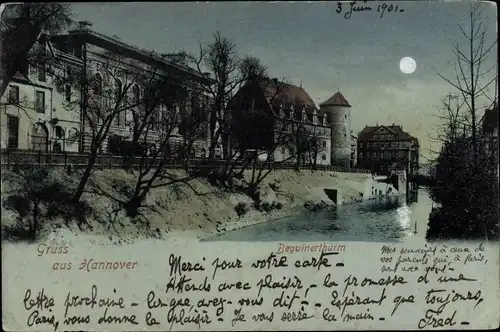 3 Juin 1901.
Gruss
aus Hannover
Beguinerthurm
Mes souvenirs à ceux de
vos parents qui, à Paris,
ont
Merci pour votre carte -
Attends avec plaisir, la promesse d'une
lettre prochaine - lorque, avez vous dit - Espérant que toujours,
Paris, vous donne le plaisir. - Je vous serre la main. - Fred -